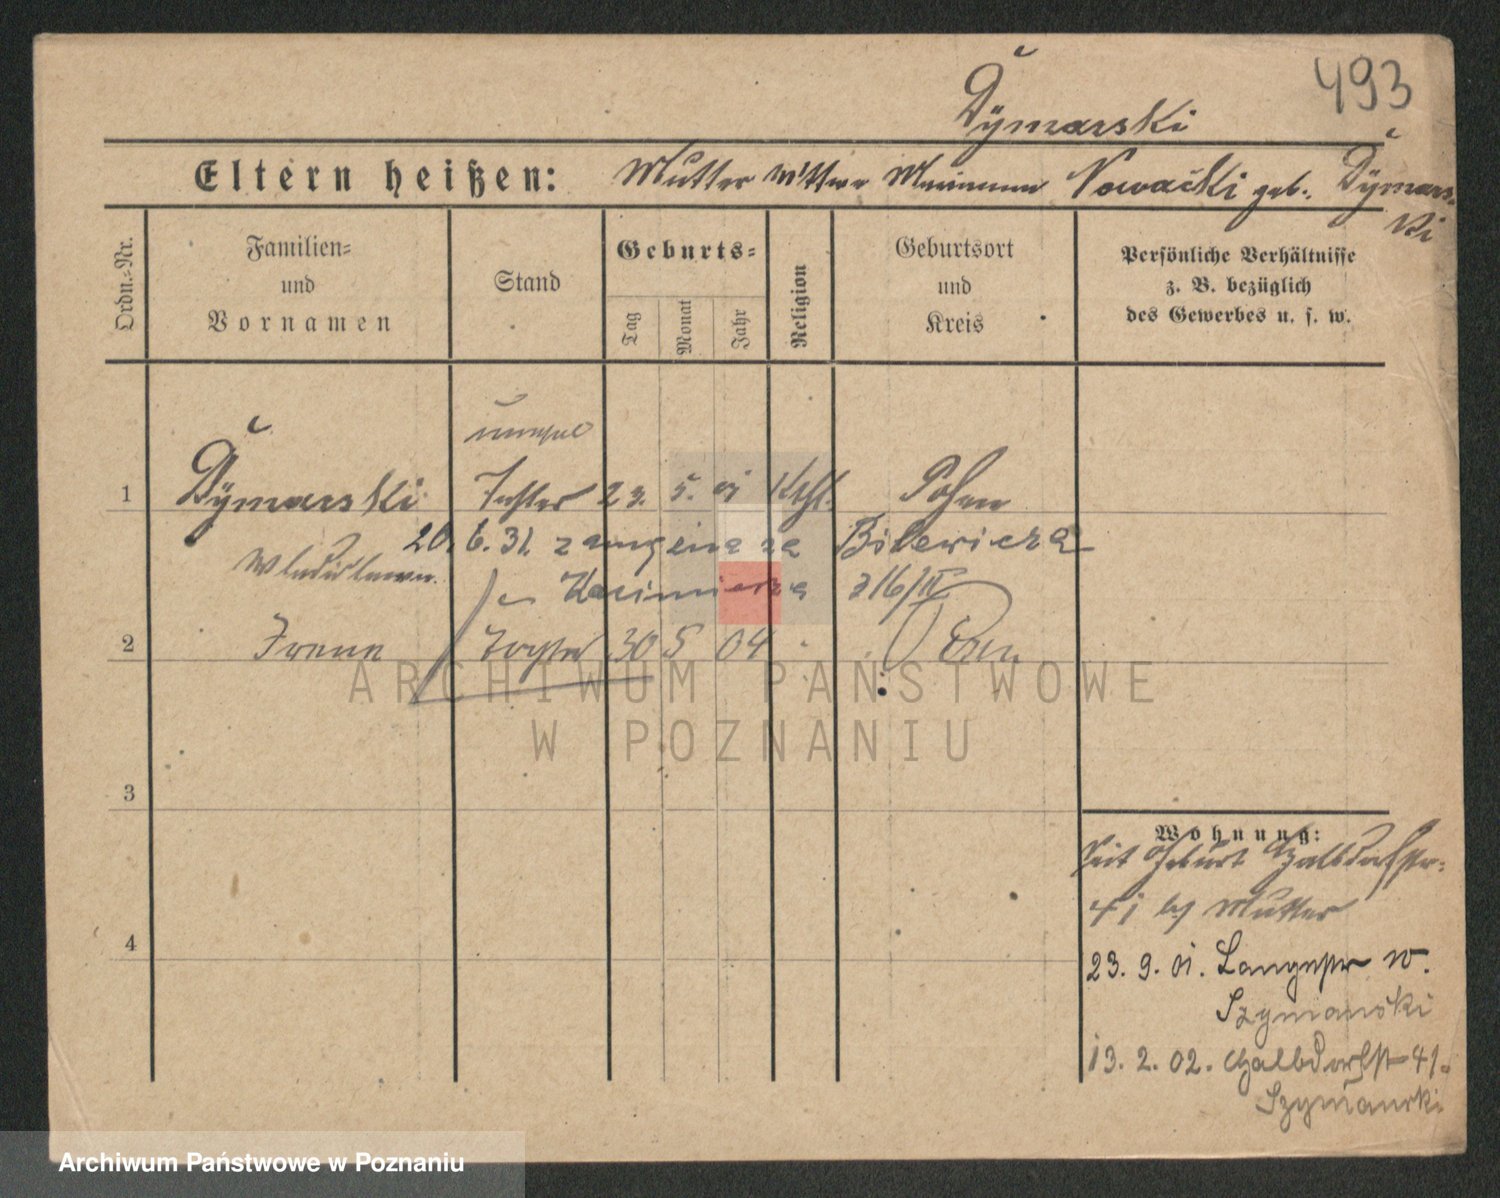 493
Dÿmarski
Eltern heißen: Mutter Wittwe Nowacki geb. Dÿmars-
ki
Ordn.=Nr.
Familien=
und
Vornamen
Stand
Geburts=
Tag
Monat
Jahr
Religion
Geburtsort
und
Kreis
Persönliche Verhältnisse
z. B. bezüglich
des Gewerbes u. s. w.
1 Dÿmarski Tochter 23. 5. 01 Kath. Posen
20. 6. 31. zamężna za Bilewicza
Wladislawa
Kazimierza
2 Irene Tochter 30 5 04
3
4
Wohnung:
seit Geburt Halbdorfstr.
41 bei Mutter
23. 9. 01. Langestr
Szymanski
13. 2. 02. Halbdorfstr 41.
Szymanski
ARCHIWUM PAŃSTWOWE
W POZNANIU
Archiwum Państwowe w Poznaniu